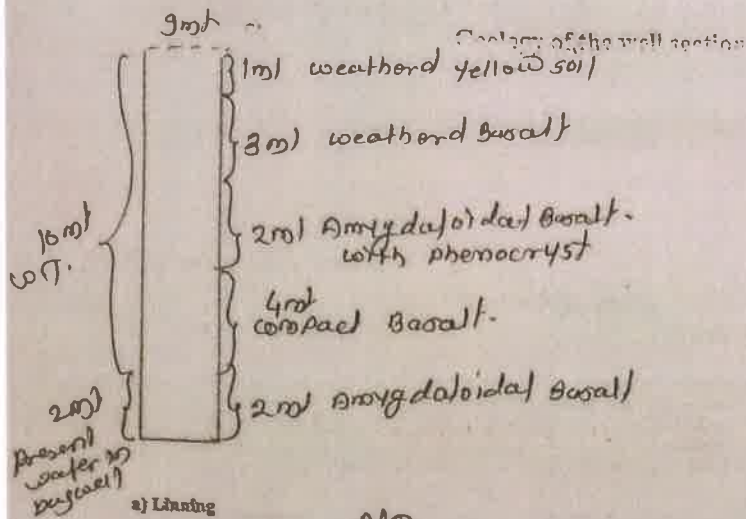 9mt
Geology of the well section
1mt weatherd yellow soil
3mt weatherd Basalt
2mt Amygdaloidal Basalt.
with phenocryst
10mt
WT.
4mt
compact Basalt.
2mt Amygdaloidal Basalt
2mt
Present
water in
dugwell
a) Linning